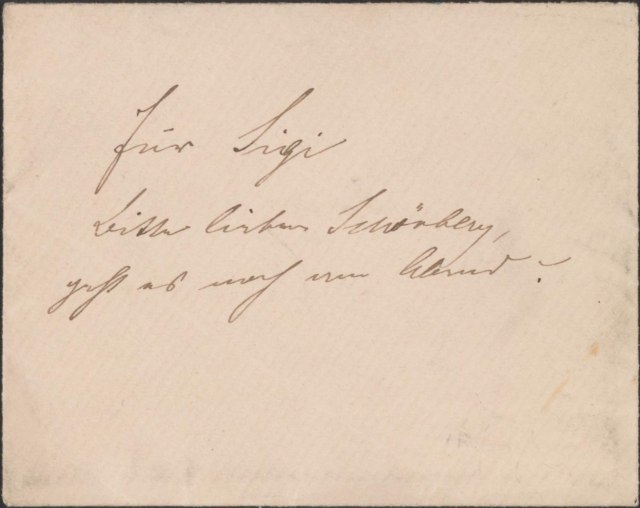 Für Sigi
Bitte lieber Schönberg,
geht es noch am Abend?